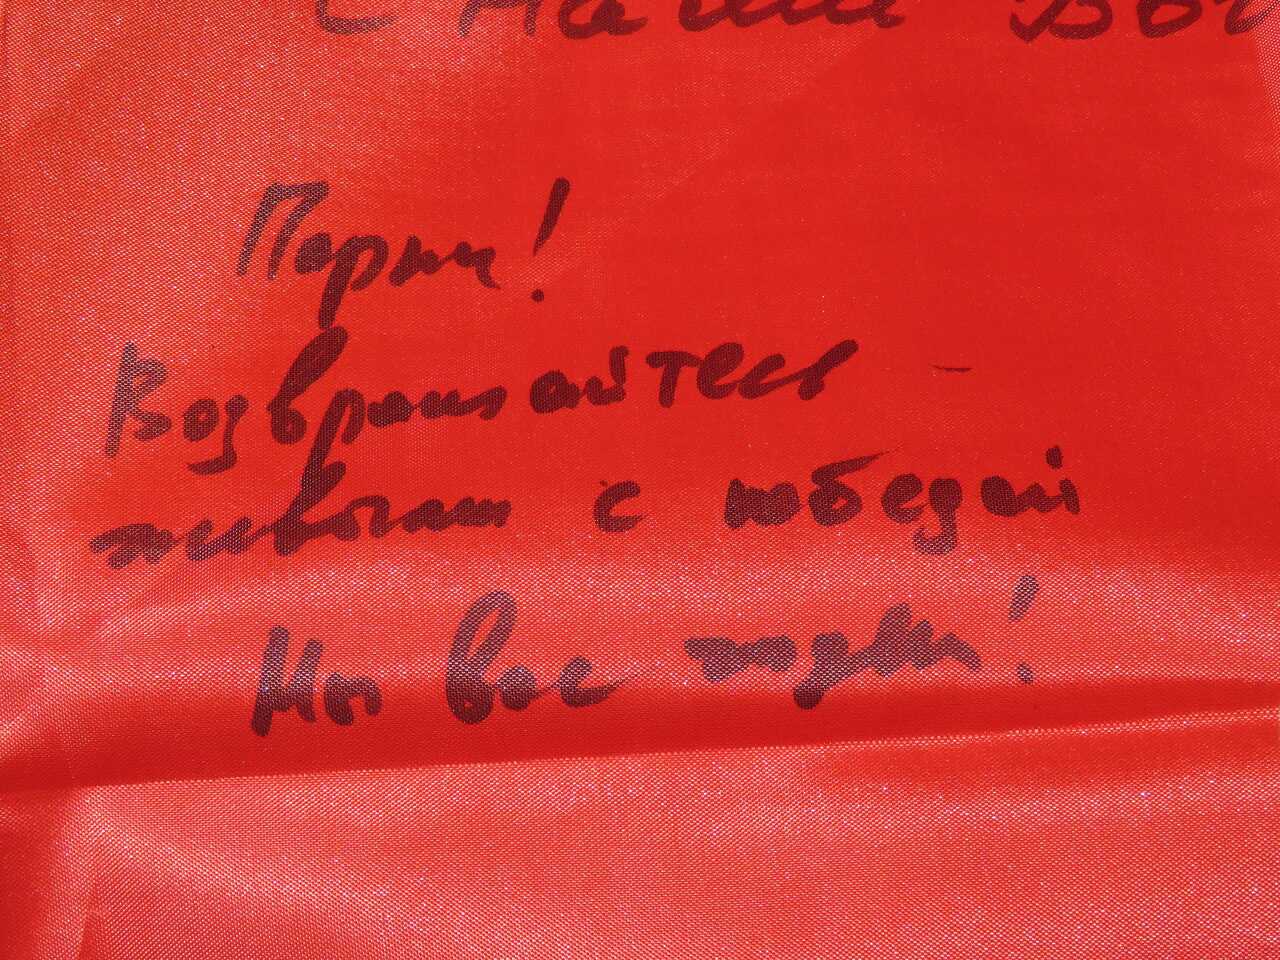 С Нами Бог
Парни!
Возвращайтесь -
живыми с победой
Мы вас ждём!